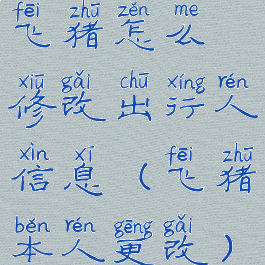 fēi zhū zěn me
飞猪怎么
xiū gǎi chū xíng rén
修改出行人
xìn xī fēi zhū
信息（飞猪
běn rén gēng gǎi
本人更改）